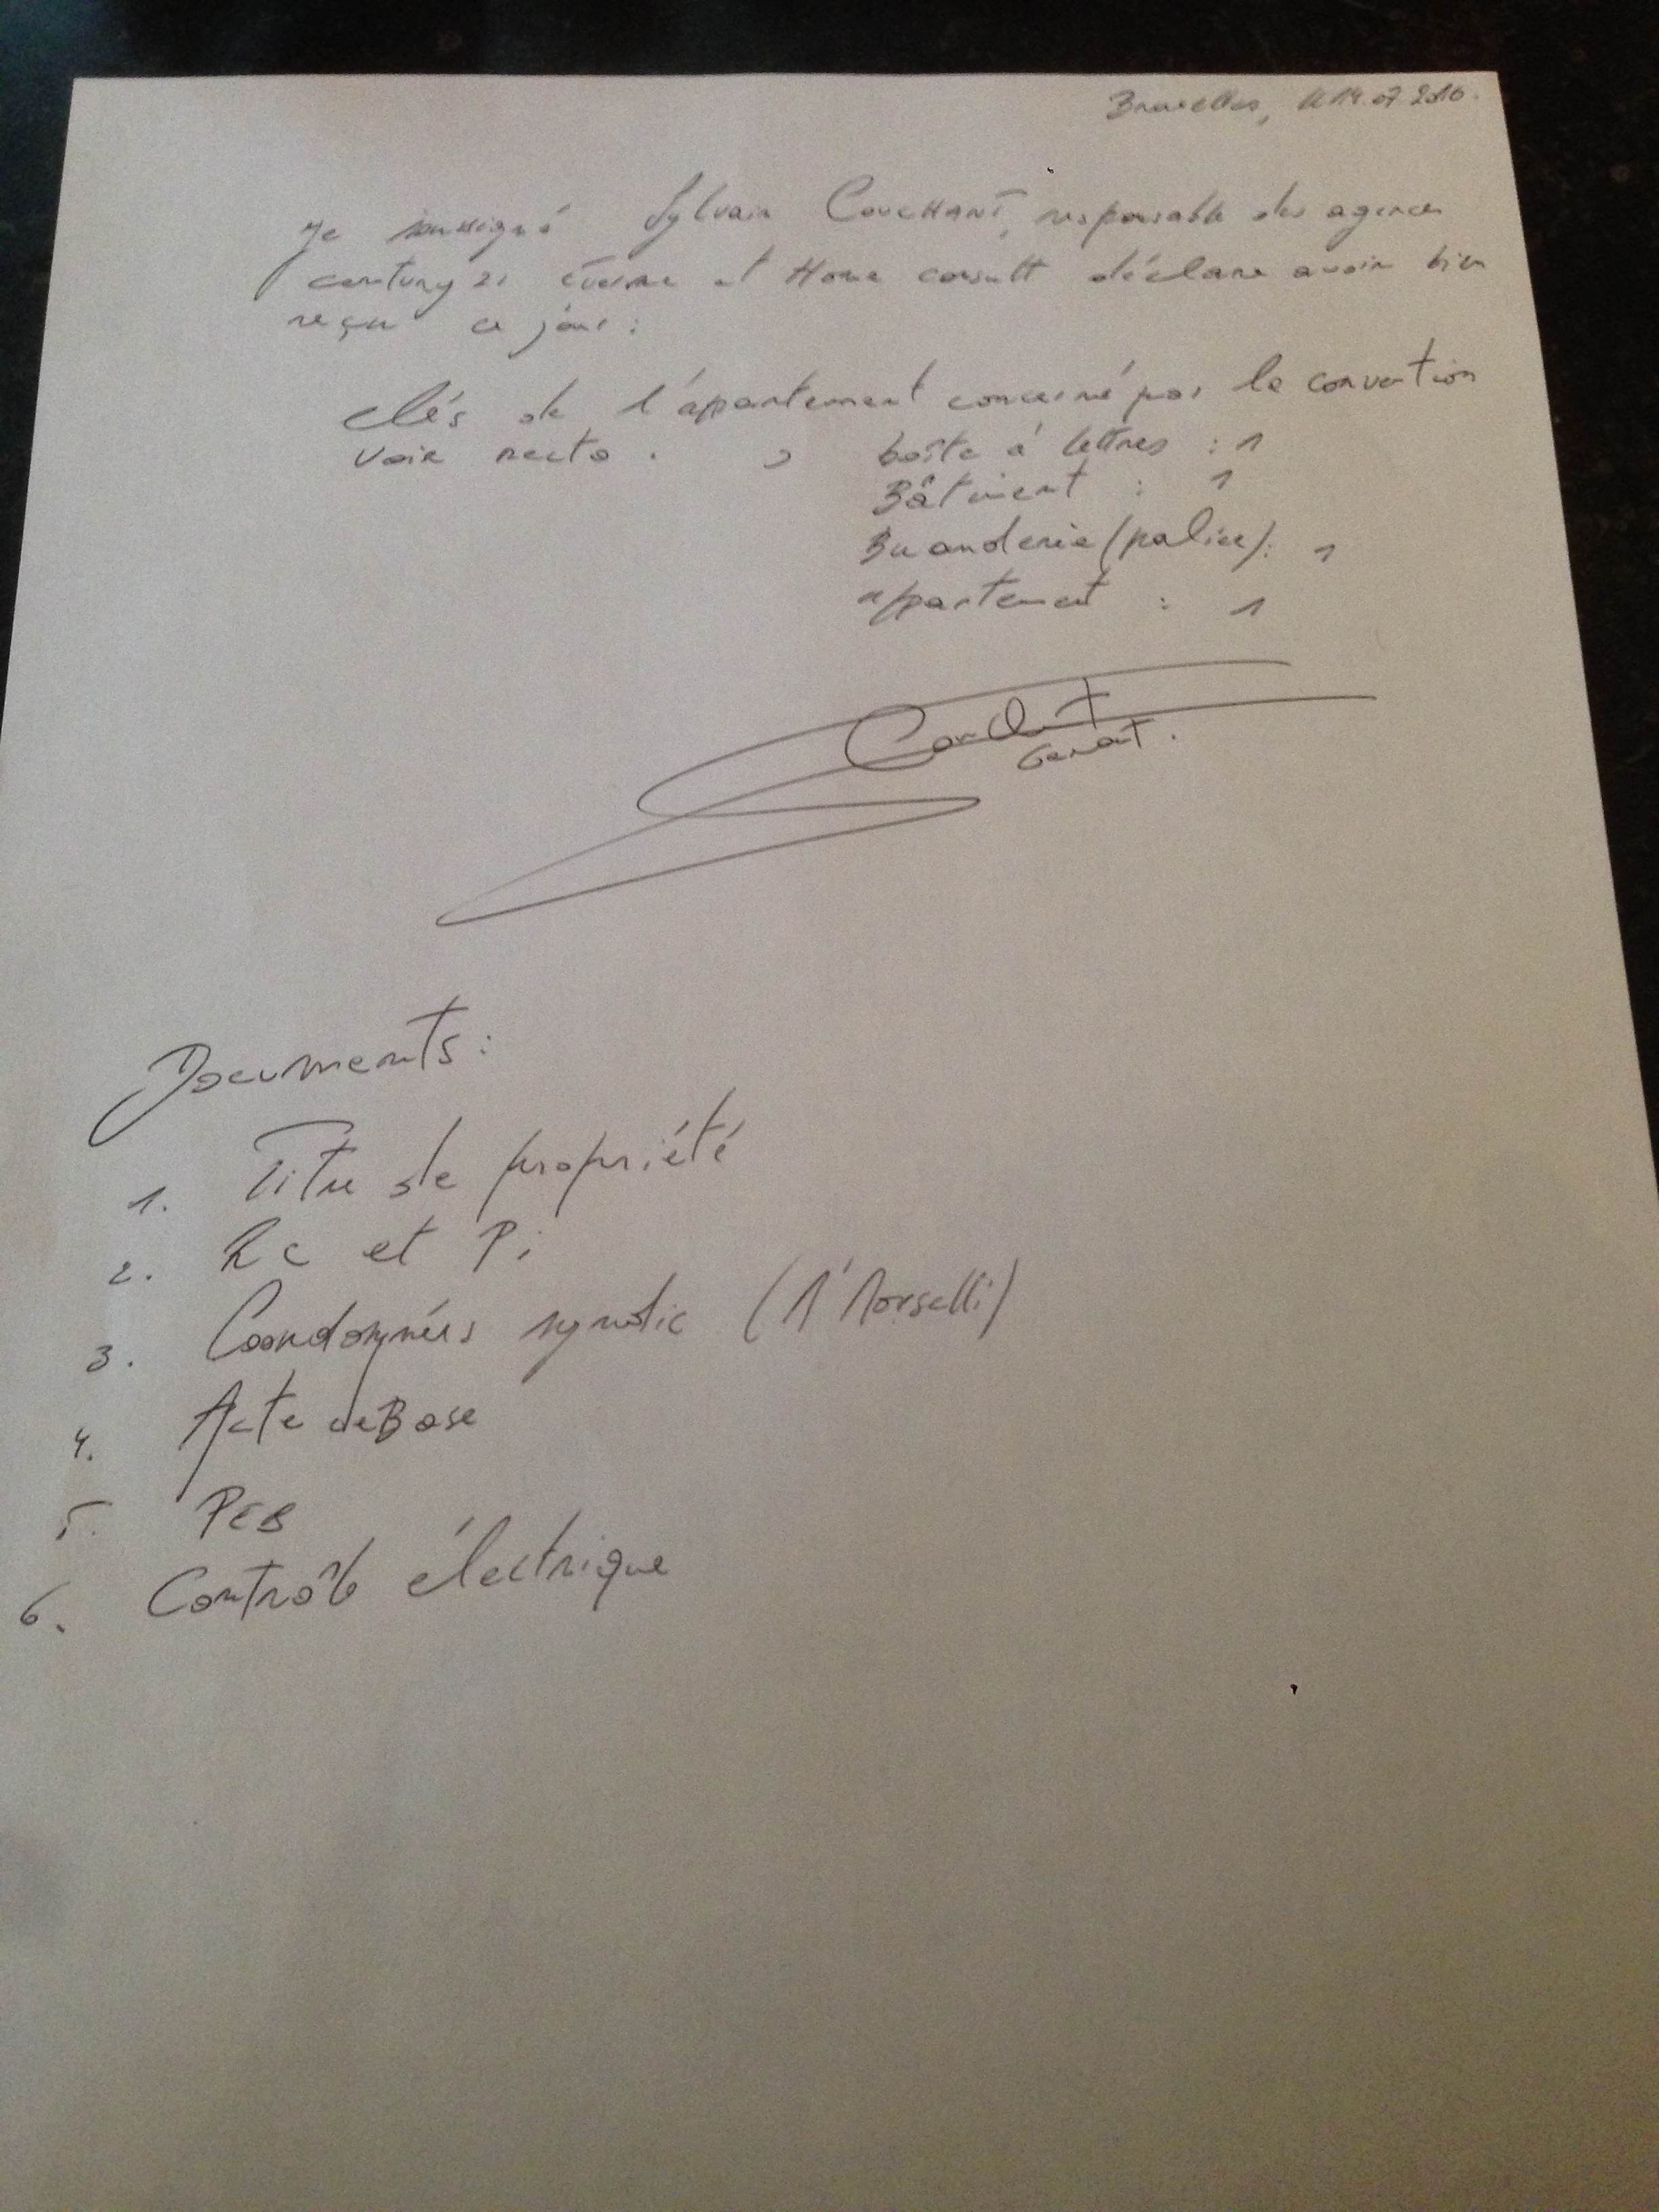 Bruxelles, le 14.07.2016.
Je soussigné Sylvain CouCHANT, responsable des agences
century 21 et Home consult déclare avoir bien
reçu ce jour :
clés de l'appartement concerné par la convention
voir recto. boîte à lettres : 1
Bâtiment : 1
Buanderie (palier) : 1
appartement : 1
Gérant.
Documents :
1. Titre de propriété
2. Rc et Pi
3. Coordonnées syndic (Morselli)
4. Acte de Base
5. PEB
6. Contrôle électrique